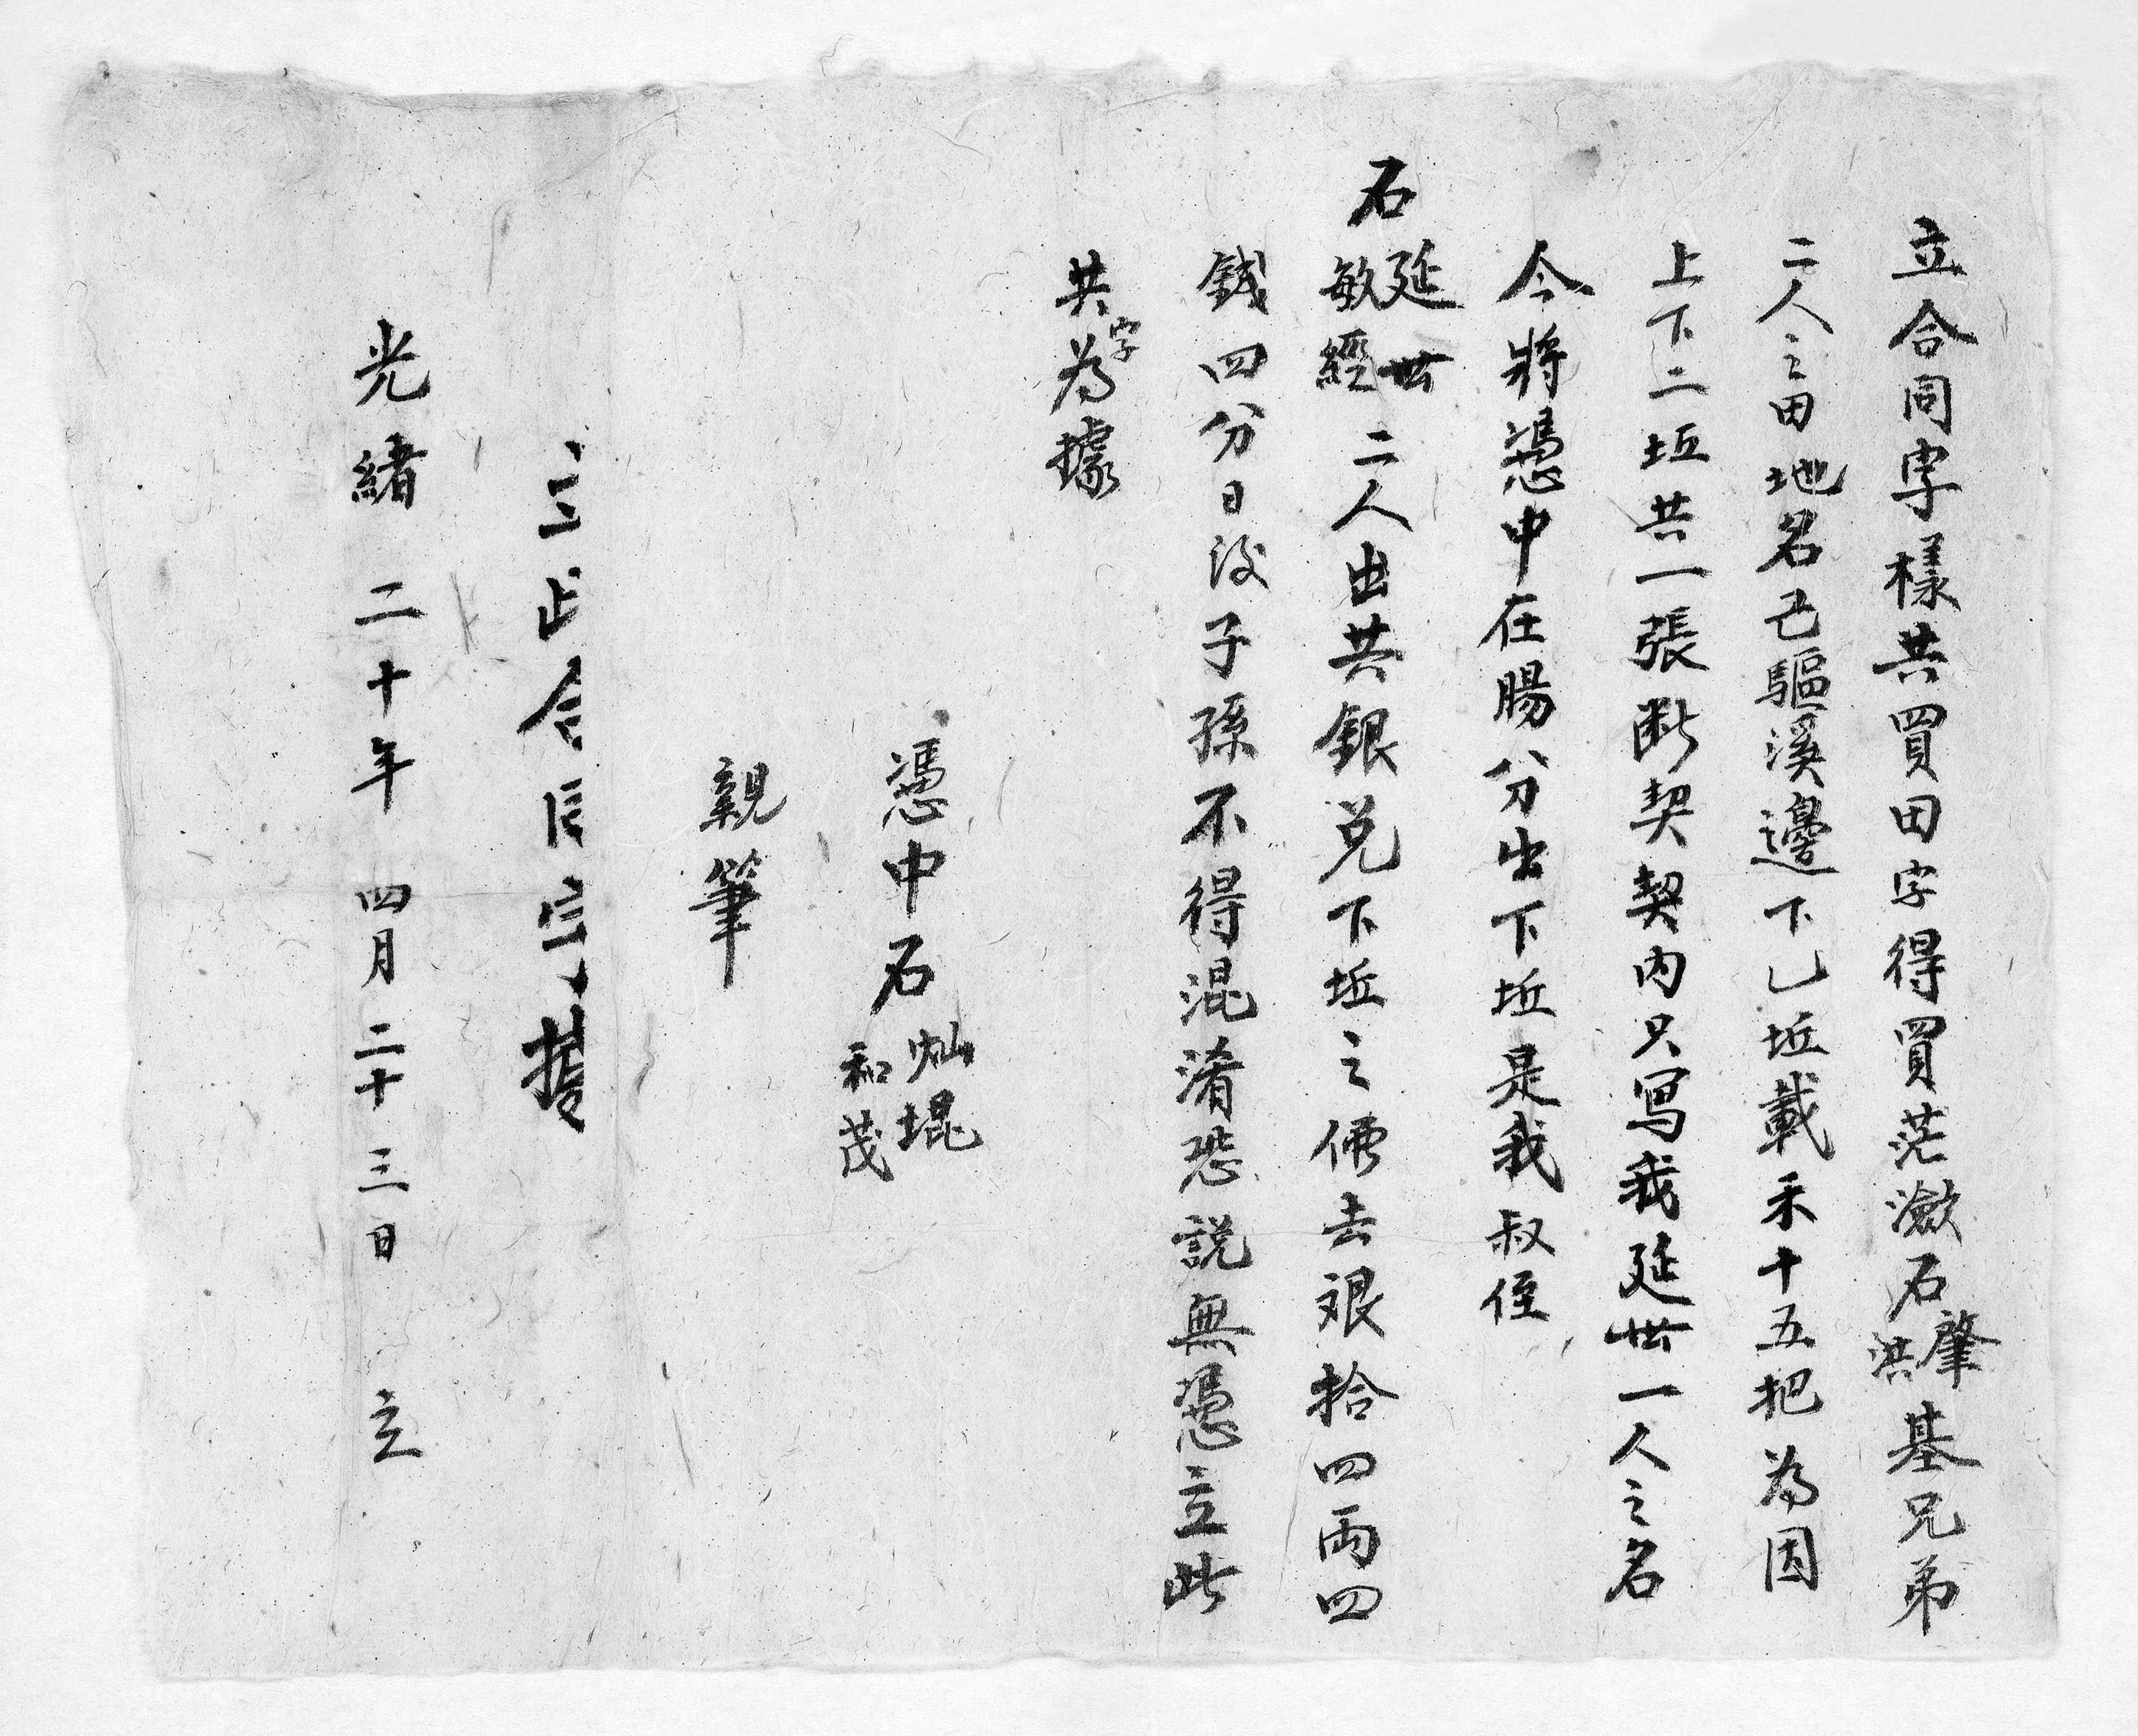 立合同字樣共買田字得買茫潋石肇洪基兄弟
二人之田地名己驅溪邊下乙坵載禾十五把為因
上下二坵共一張断契契內只寫我延世一人之名
今將憑中在腸分出下坵是我叔侄
石延世敏經二人出共銀兌下坵之價去艮拾四両四
錢四分日後子孫不得混淆恐說無憑立此
共字為據
憑中石灿焜和茂
親筆
光緒二十年四月二十三日立